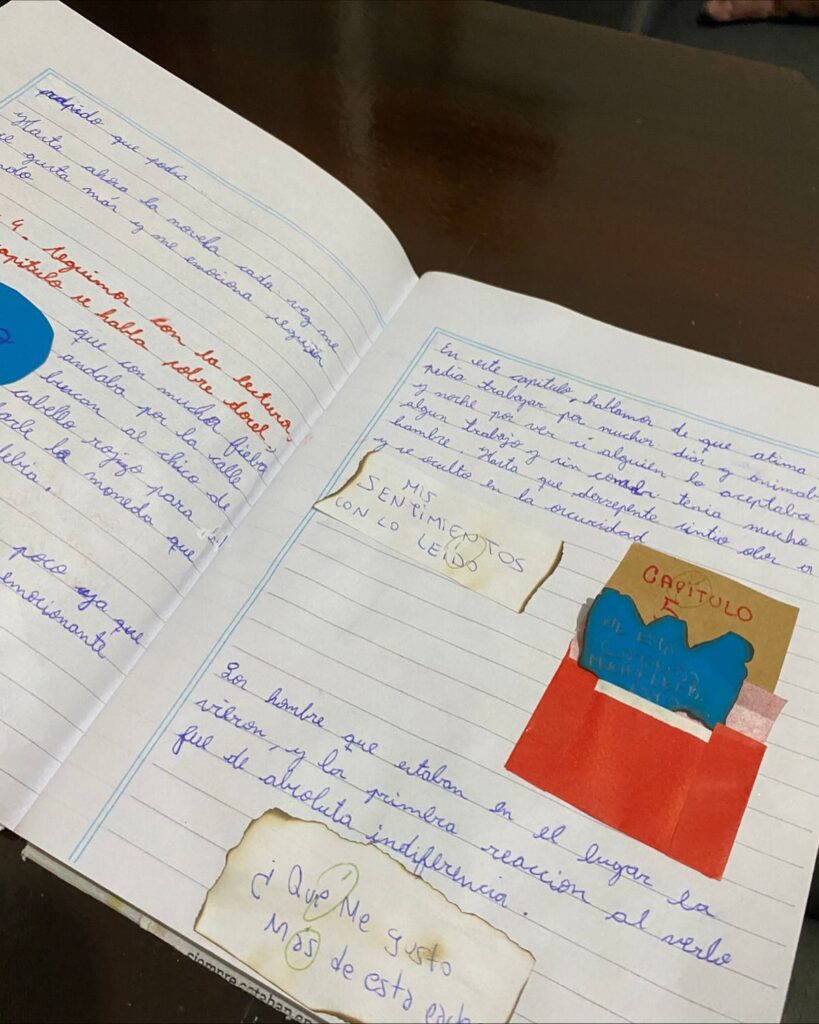 que podia
Hasta ahora la novela cada vez me
gusta más y me emociona seguir
4. Seguimos con la lectura,
capitulo se habla sobre dorel,
que con mucha fiebre
andaba por la calle
buscan al chico de
cabello rojizo para
la moneda que
debria.
poco ya que
emocionante
En este capitulo, hablamos de que atima
pedia trabajar por muchos dias y
y noche por ver si alguien lo aceptaba
algun trabajo y sin comer tenia mucho
hambre. Hasta que derrepente sintio olor
y se oculto en la oscuridad
MIS
SENTIMIENTOS
CON LO LEÍDO
CAPÍTULO
5
Los hombre que estaban en el lugar la
vieron, y la primera reaccion al verlo
fue de absoluta indiferencia.
¿Qué Me gusto
Más de esta
siempre estaban en